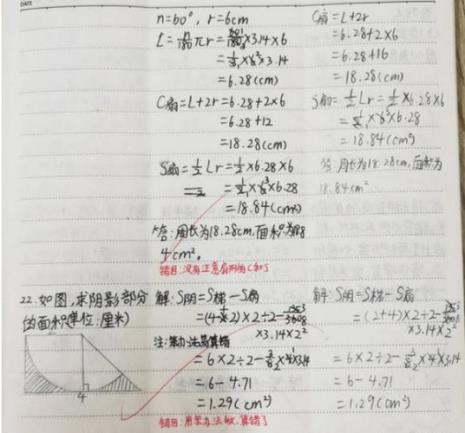 n=60°, r=6cm
l=n/180 πr=60/180×3.14×6
=1/3×6×3.14
=6.28(cm)
C扇=L+2r=6.28+2×6
=6.28+12
=18.28(cm)
S扇=1/2Lr=1/2×6.28×6
=1/2×6×6.28
=18.84(cm²)
答:周长为18.28cm,面积为18.8
4cm²。
错因:没有注意看
C扇=L+2r
=6.28+2×6
=6.28+16
=18.28(cm)
S扇=1/2Lr=1/2×6.28×6
=1/2×6×6.28
=18.84(cm²)
答:周长为18.28cm,面积为
18.84cm²
22.如图,求阴影部分
的面积(单位:厘米)
4
解:S阴=S梯-S扇
=(4+2)×2÷2-
×3.14×2²
注:
=6×2÷2-3/8×4×3.14
=6-4.71
=1.29(cm²)
错因:
算错了
解:S阴=S梯-S扇
=(2+4)×2÷2-
×3.14×2²
=6×2÷2-3/8×4×3.14
=6-4.71
=1.29(cm²)